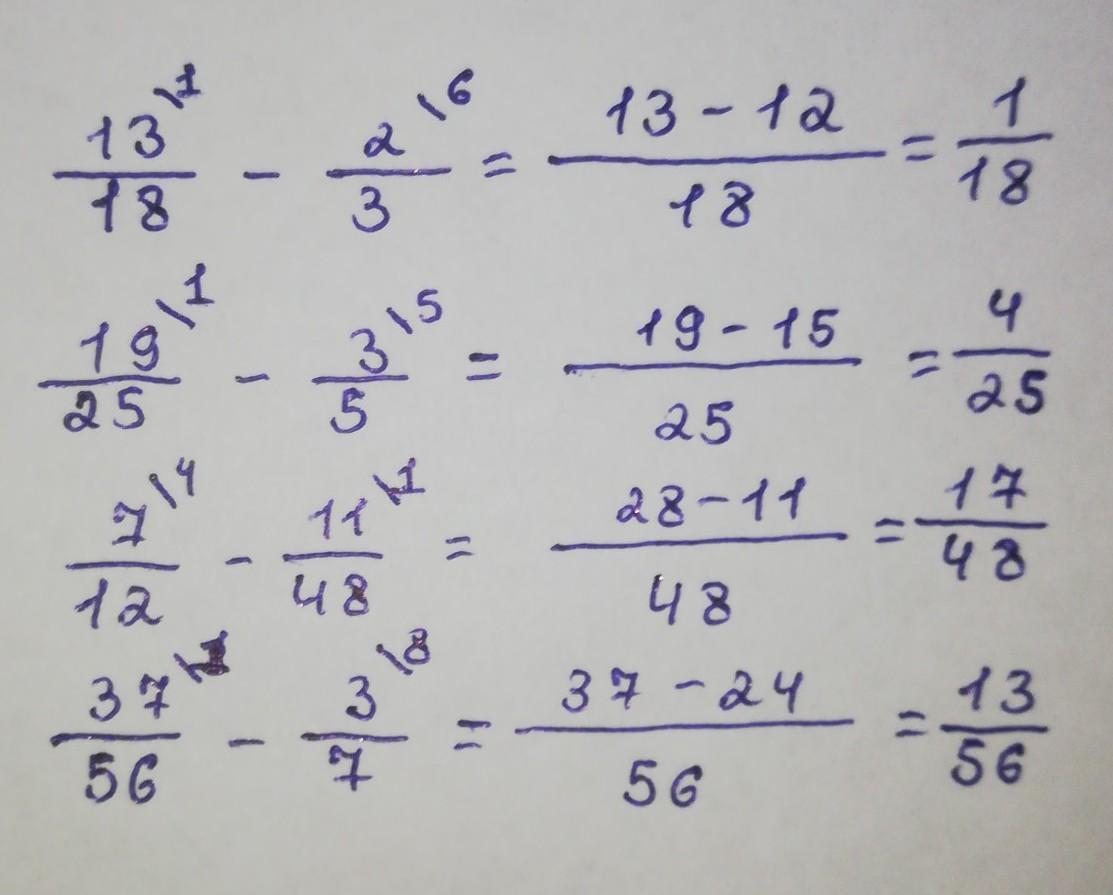 13\1/18 - 2\6/3 = 13 - 12/18 = 1/18
19\1/25 - 3\5/5 = 19 - 15/25 = 4/25
7\4/12 - 11\1/48 = 28 - 11/48 = 17/48
37\1/56 - 3\8/7 = 37 - 24/56 = 13/56